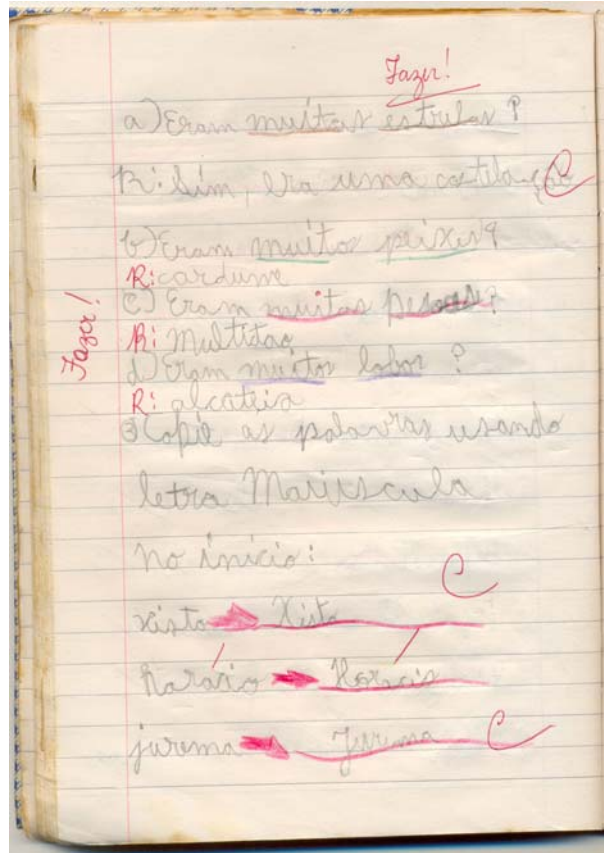 Fazer!
a) Eram muitas estrelas?
R: Sim, era uma costelação
C
b) Eram muito peixes?
R: cardume
c) Eram muitas pessoas?
Fazer!
R: Multidao
d) Eram muitos lobos?
R: alcateia
③ Copie as palavras usando
letra Maiúscula
no início:
C
xisto Xisto
horácio Horácio
jurema Jurema C